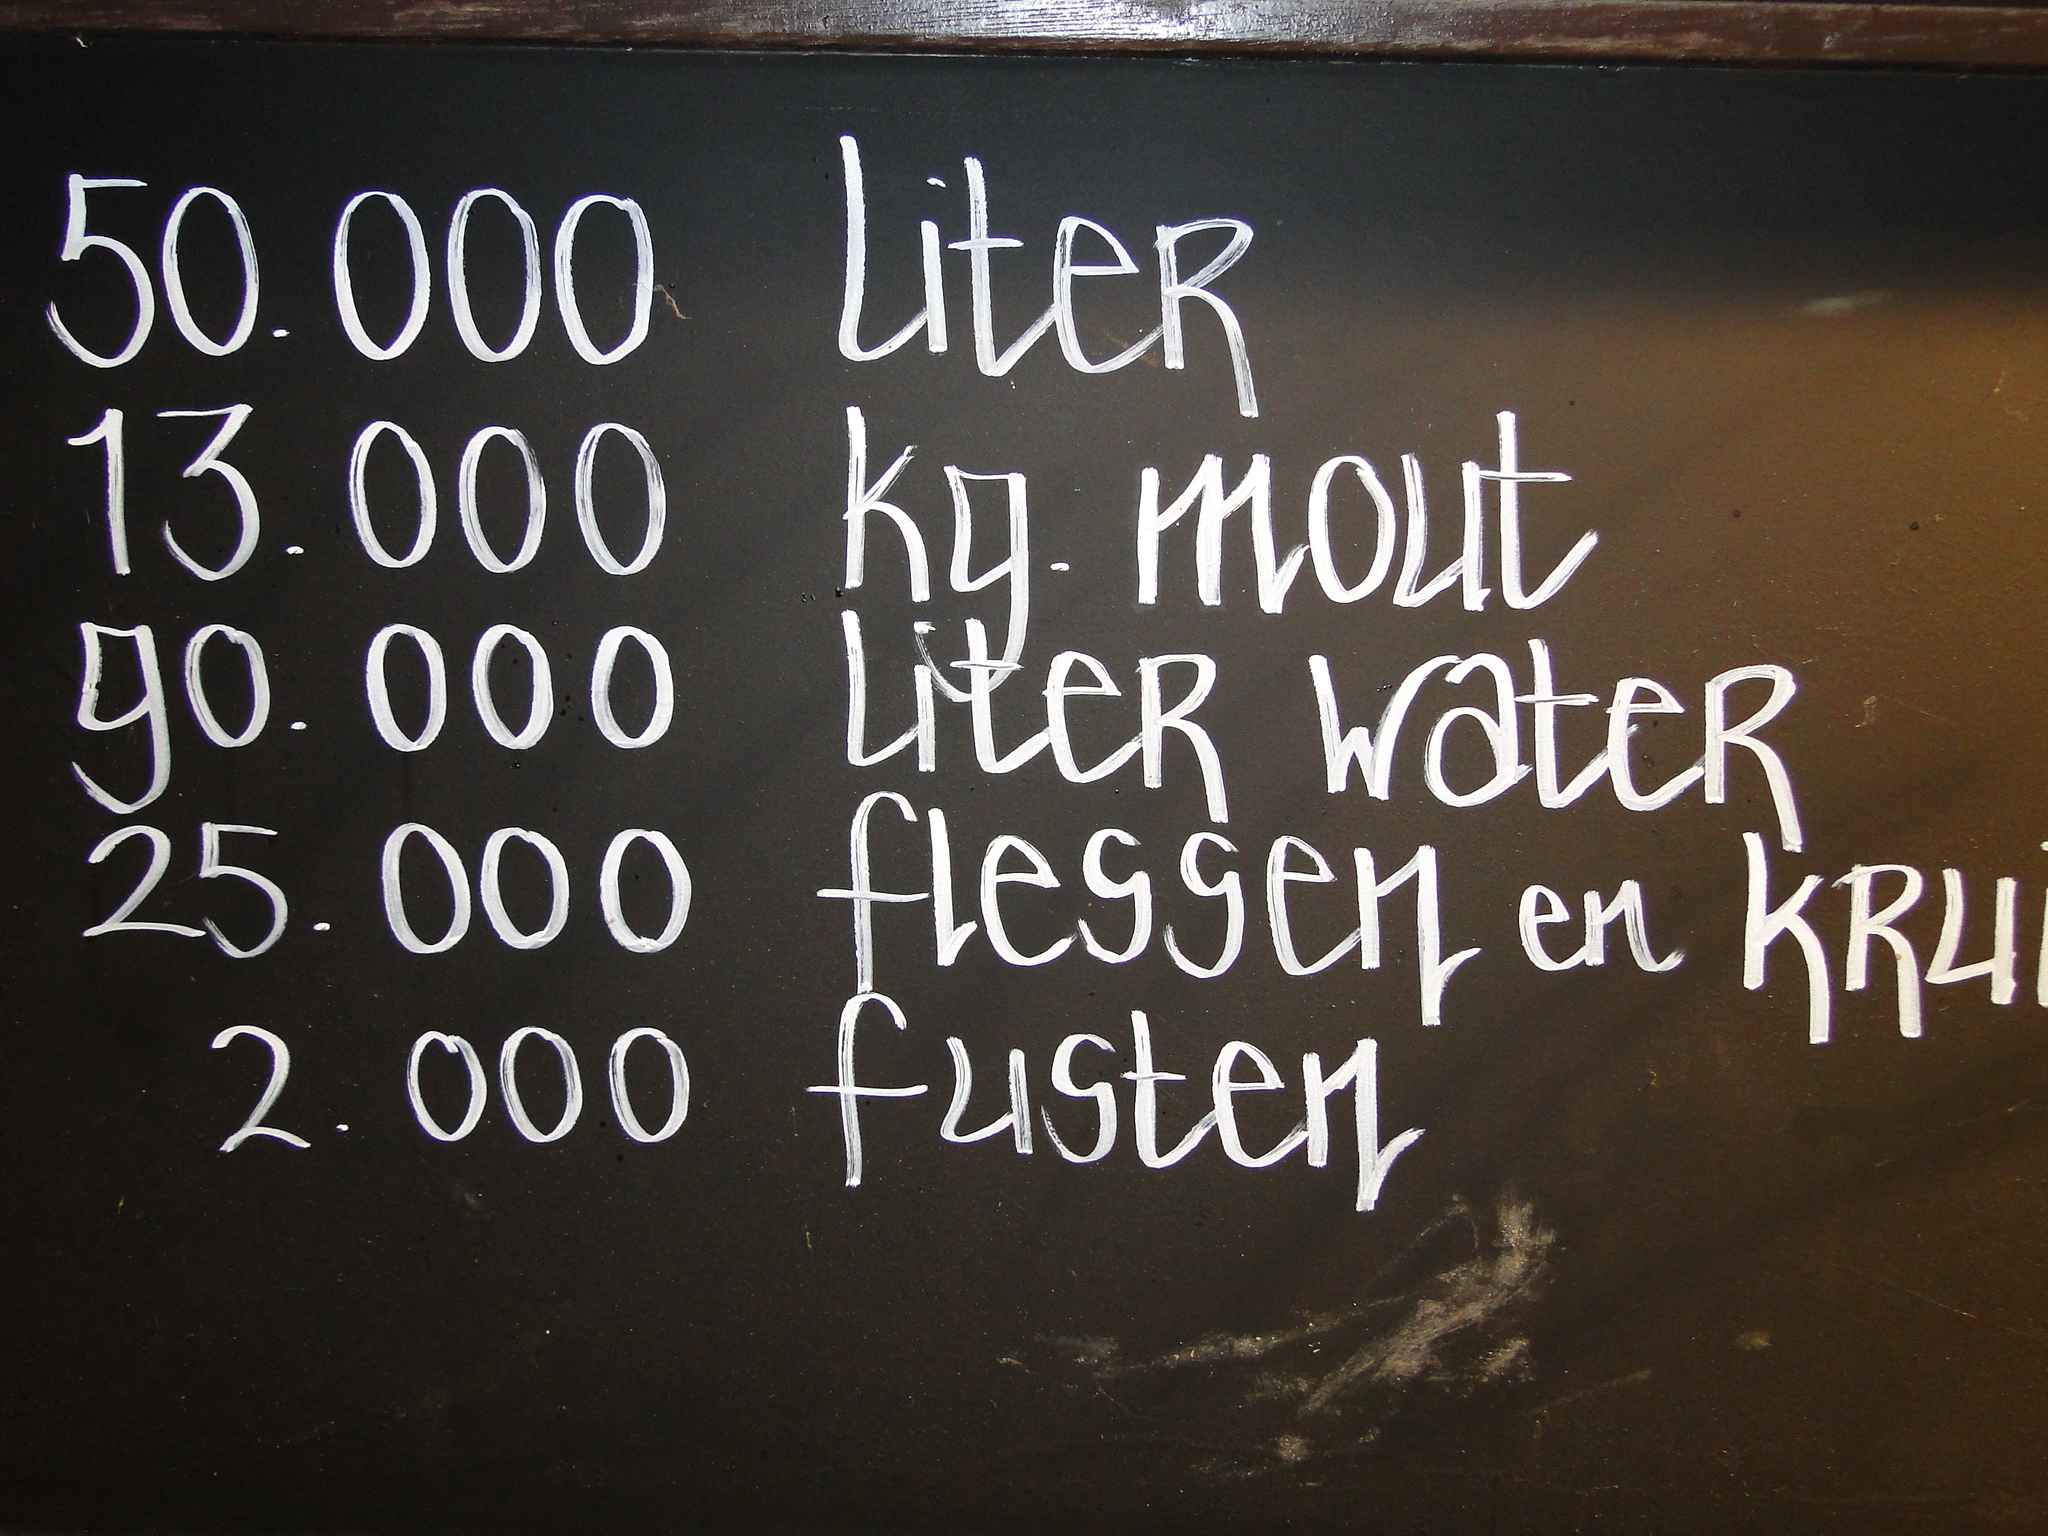 50.000 liter
13.000 kg. mout
90.000 liter water
25.000 flessen en
2.000 fusten